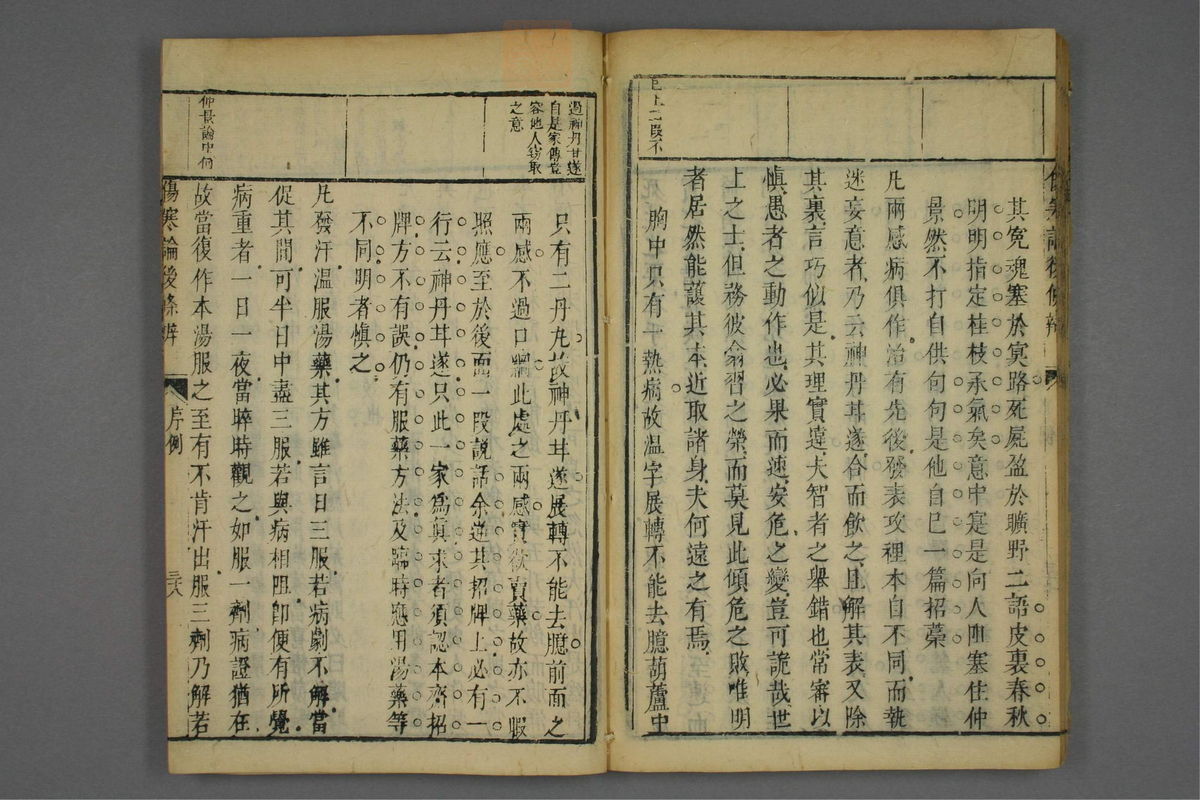 已上二段不
傷寒論後條辨
其冤魂塞於冥路死屍盈於曠野二語皮裏春秋
明明指定桂枝承氣矣意中寔是向人血塞住仲
景然不打自供句句是他自己一篇招藁
凡兩感病俱作治有先後發表攻裡本自不同而執
迷妄意者乃云神丹甘遂合而飲之且解其表又除
其裏言巧似是其理實違夫智者之舉錯也常審以
慎愚者之動作也必果而速安危之變豈可詭哉世
上之士但務彼翕習之榮而莫見此傾危之敗唯明
者居然能護其本近取諸身夫何遠之有焉
胸中只有一熱病故溫字展轉不能去臆葫蘆中
過神丹甘遂
自是家傳豈
容他人竊取
之意
只有二丹丸故神丹甘遂展轉不能去臆前面之
兩感不過口綱此處之兩感實欲賣藥故亦不暇
照應至於後面一段說話余逆其招牌上必有一
行云神丹甘遂只此一家為眞求者須認本齋招
牌方不有誤仍有服藥方法及臨時應用湯藥等
不同明者慎之
凡發汗溫服湯藥其方雖言日三服若病劇不解當
促其間可半日中盡三服若與病相阻卽便有所覺
病重者一日一夜當晬時觀之如服一劑病證猶在
故當復作本湯服之至有不肯汗出服三劑乃解若
仲景論中何
傷寒論後條辨
序例
三六